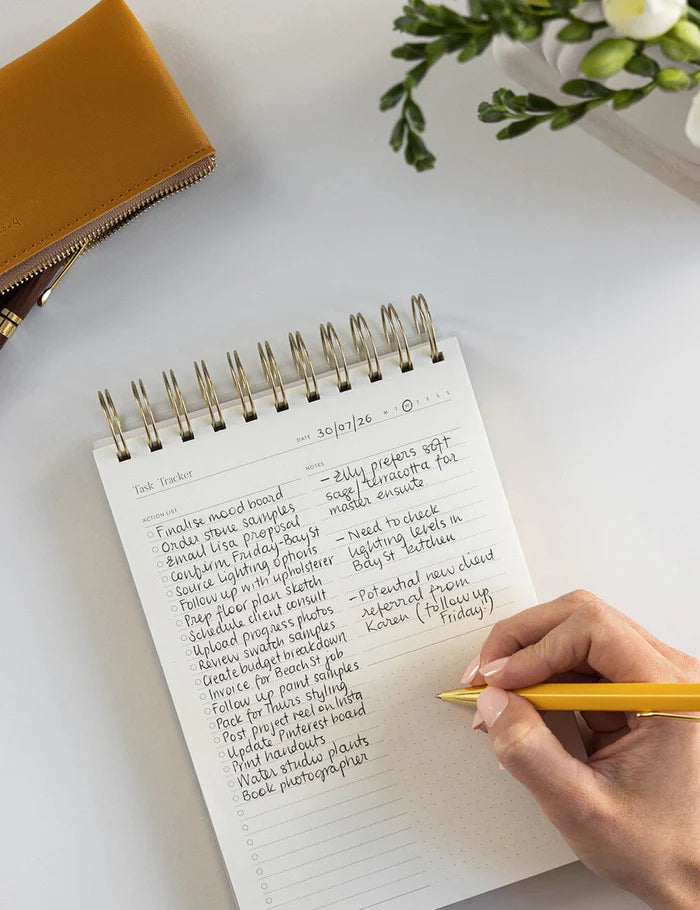 Task Tracker
DATE 30/07/26 M T W T F S S
ACTION LIST
Finalise mood board
Order stone samples
Email Lisa proposal
Confirm Friday-Bay St
Source Lighting options
Follow up with upholsterer
Prep floor plan sketch
Schedule client consult
Upload progress photos
Review swatch samples
Create budget breakdown
Invoice for Beach St job
Follow up paint samples
Pack for thurs styling
Post project reel on Insta
Update Pinterest board
Print handouts
Water studio plants
Book photographer
NOTES
- Elly prefers soft
sage/terracotta for
master ensuite
- Need to check
lighting levels in
Bay St kitchen
- Potential new client
referral from
Karen (follow up
Friday!)